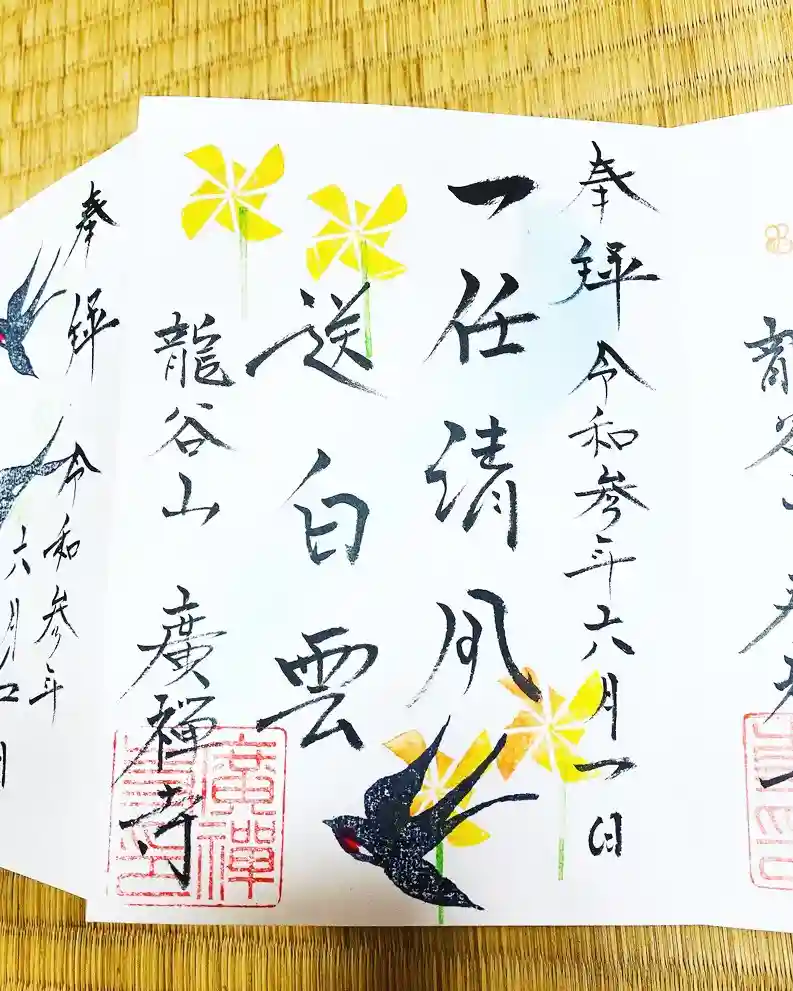 奉拝 令和参年六月一日
一任清風
送白雲
龍谷山 廣禅寺
廣禅
奉拝 令和参年
六月